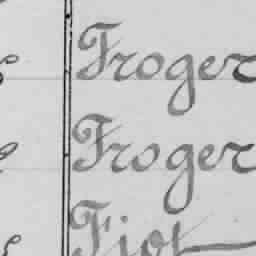 Froger
Froger
Fiot